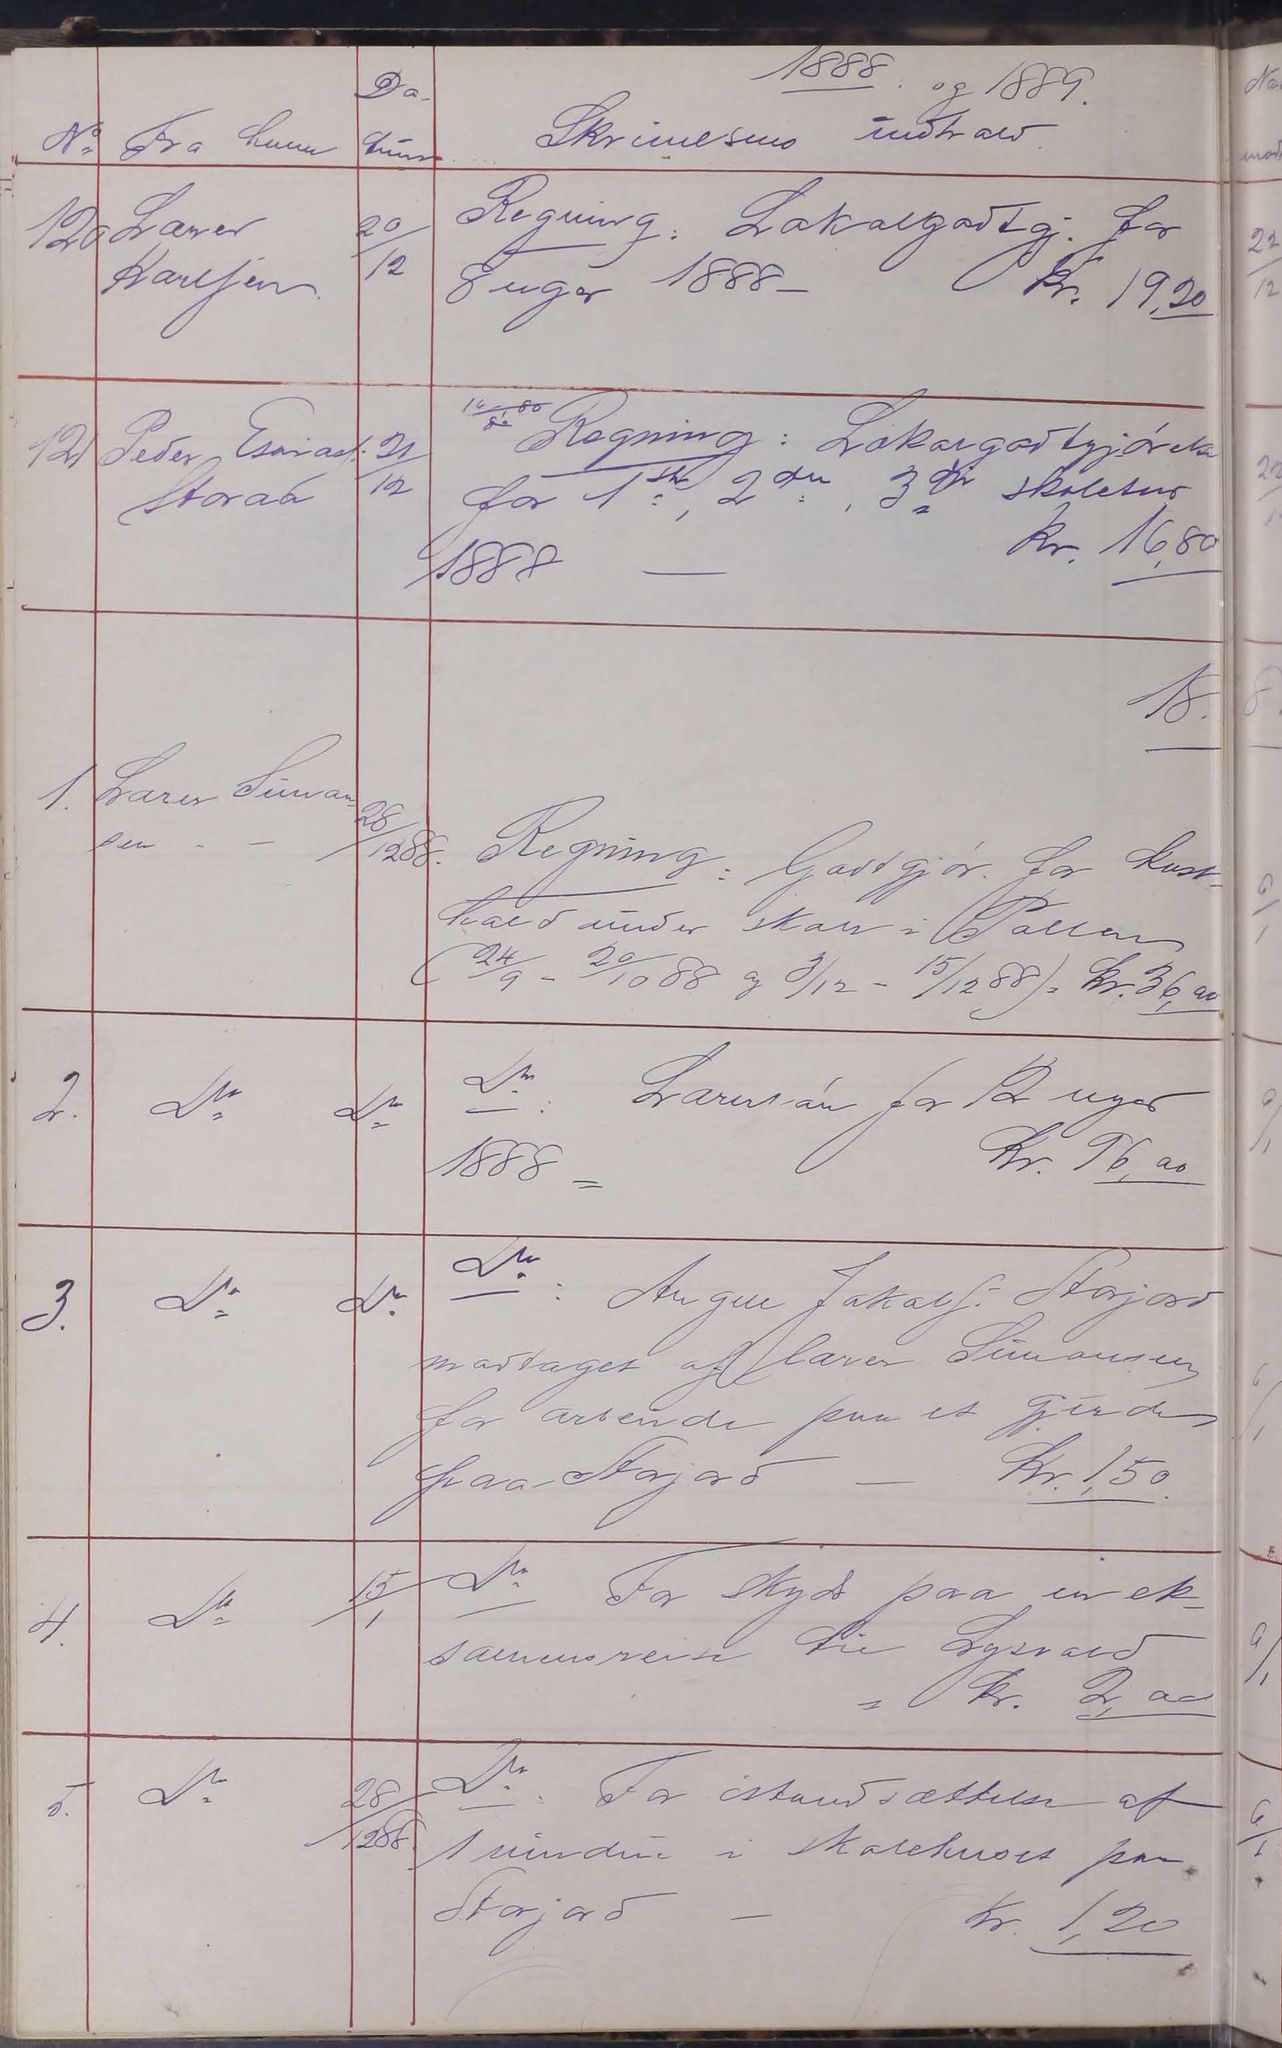 1888. og 1889.
No. Fra hvem Da-
tum Skrivelsens indhold.
120 Lærer
Karlsen. 20/12 Regning: Lokalgodtgj. for
8 uger 1888 – Kr. 19,20
121 Peder Esaiass.
Storaa 21/12 Regning: Lokalgodtgjørelse
for 1ste, 2den, 3die skoletur
1888 — kr. 16,80
18.
1. Lærer Simon-
sen - - 28/12 88. Regning: Godtgjør. for kost-
hold under skole i Pollen
(24/9 – 20/10 88 og 3/12 – 15/12 88) = kr. 36,00
2. Do Do Do: Lærerløn for 12 uger
1888 = Kr. 96,00
3. Do Do Do: Jakobs. Storjord
modtaget af lærer Simonsen
for arbeide paa et gjerde
paa Storjord — Kr. 1,50.
4. Do 15/1 Do For skyds paa en ek-
samensreise til Lysvold
= kr. 2,00
5. Do 28/12 88. Do. For istandsættelse af
1 vindu i skolehuset paa
Storjord – Kr. 1,20